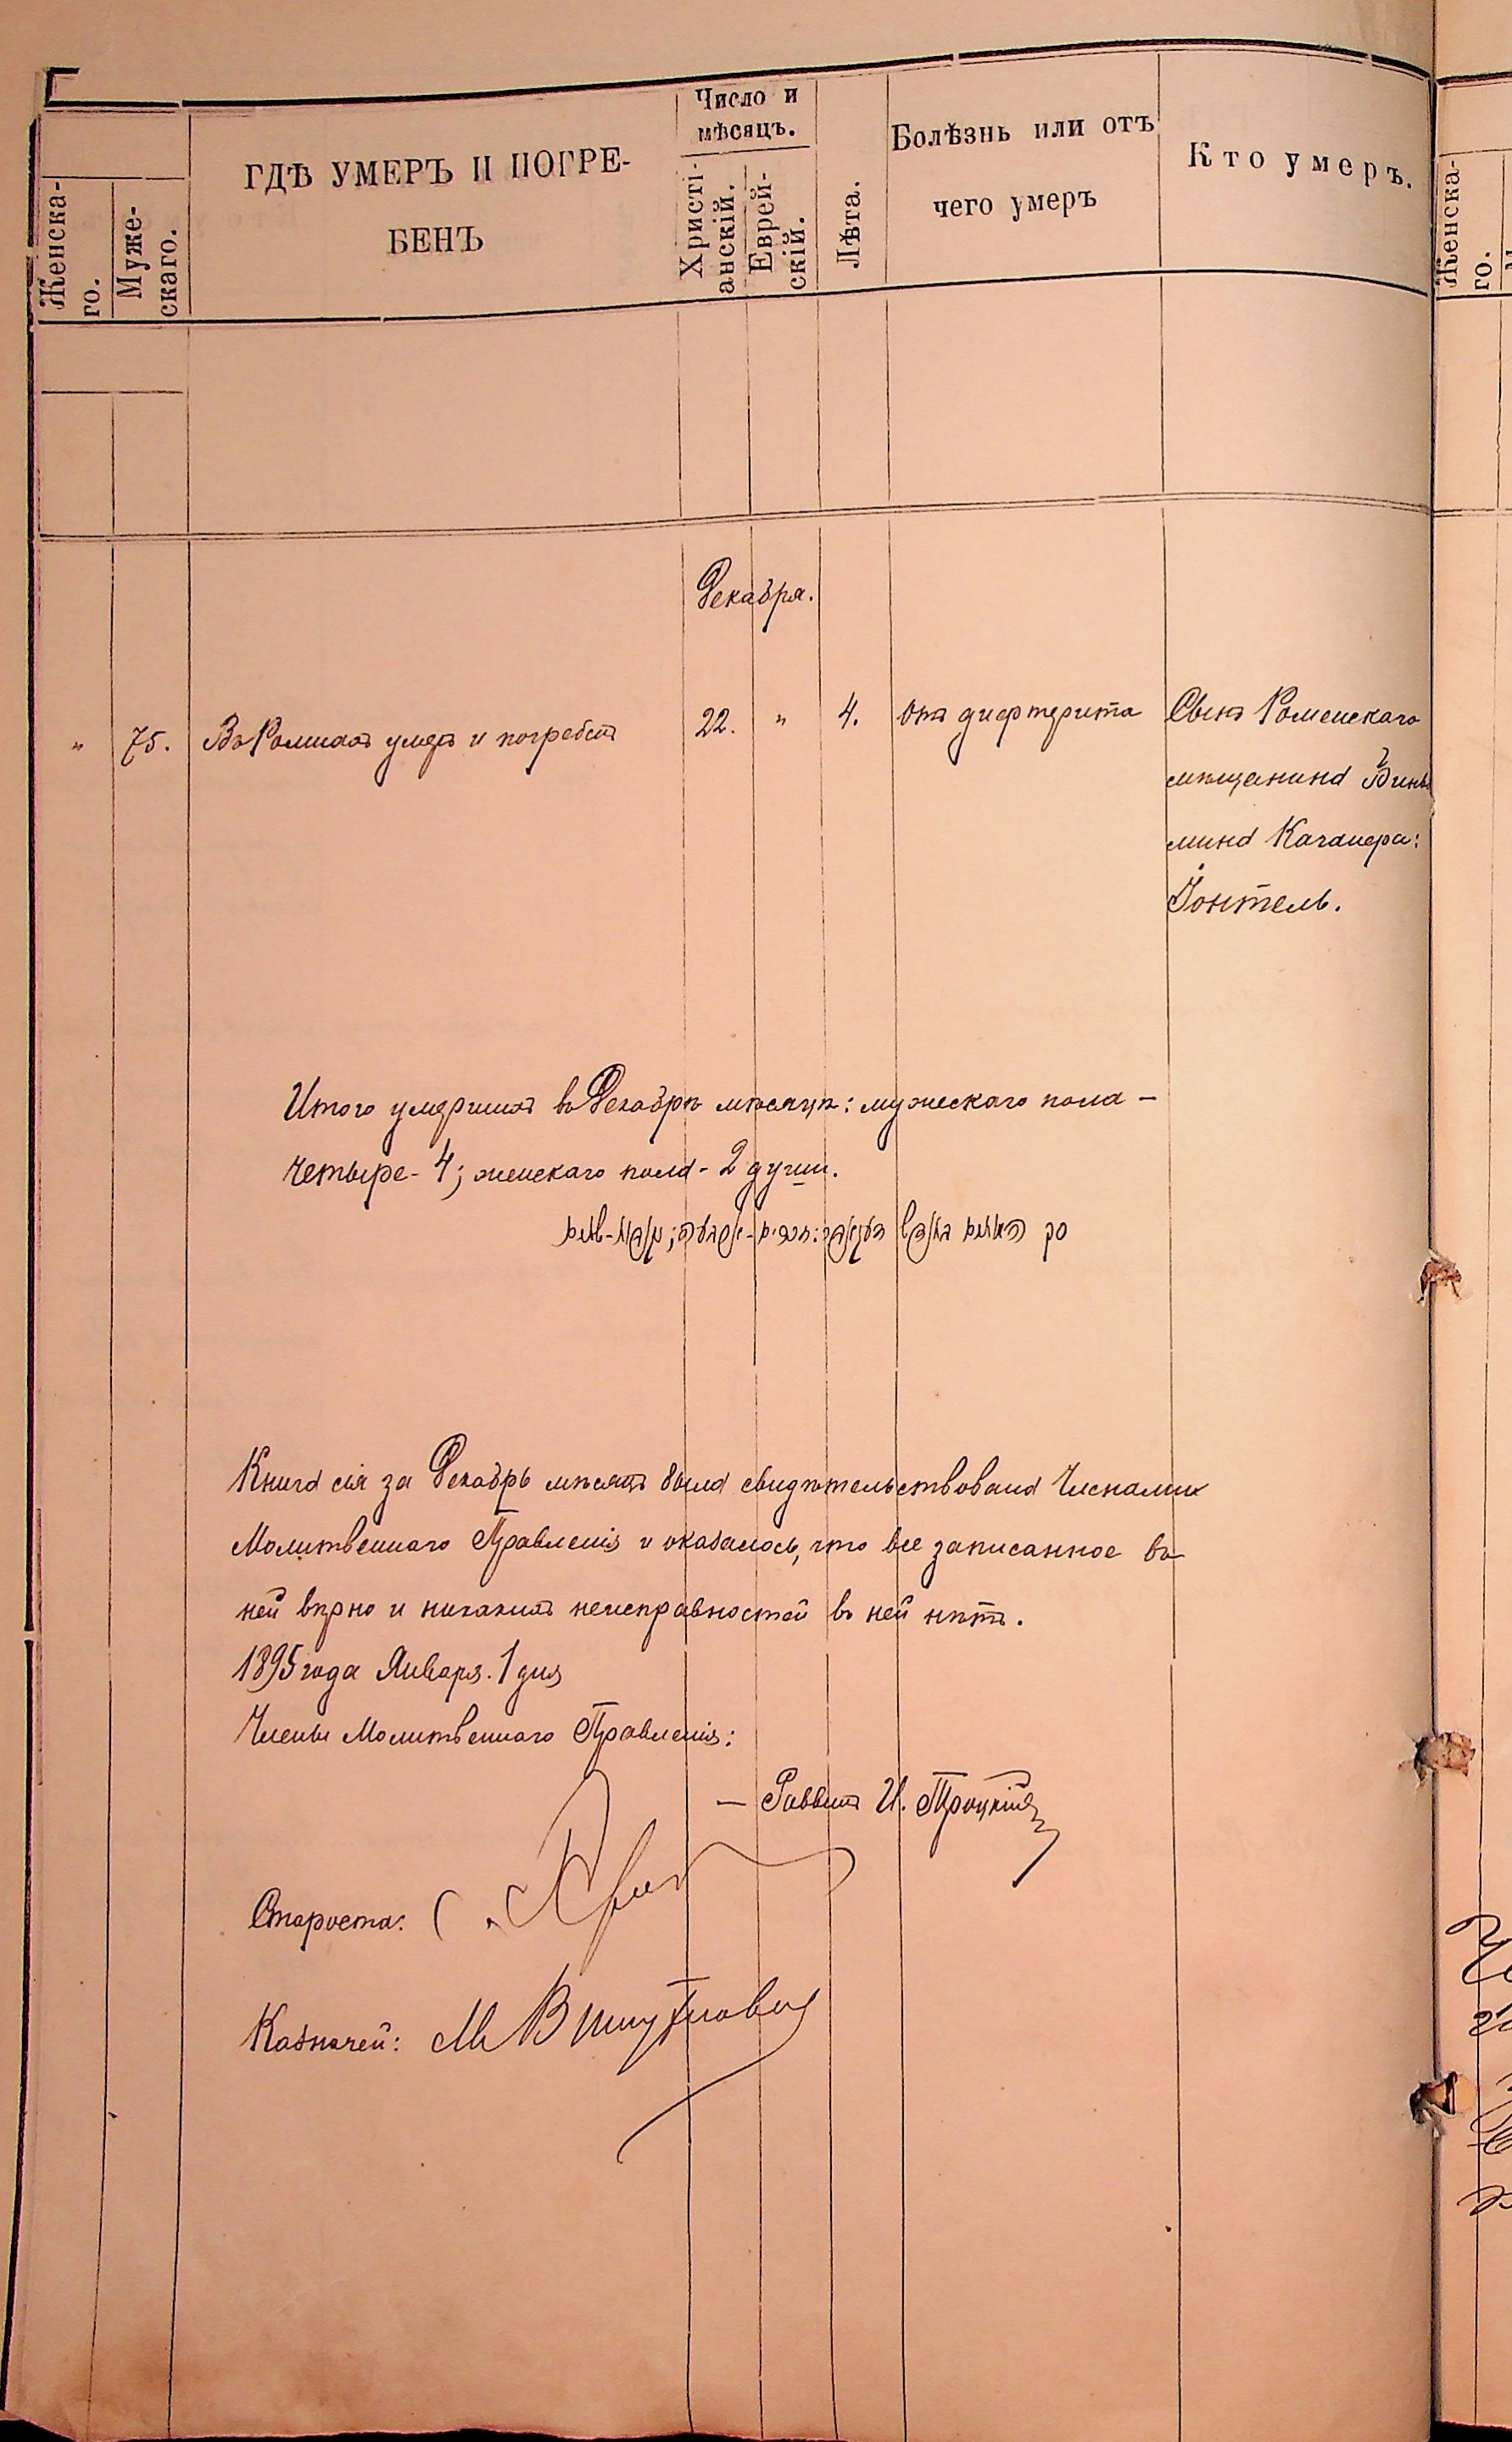 Женска-
го.
Муже-
скаго.
ГДѢ УМЕРЪ И ПОГРЕ-
БЕНЪ
Число и
мѣсяцъ.
Христі-
анскій.
Еврей-
скій.
Лѣта.
Болѣзнь или отъ
чего умеръ
Кто умеръ.
Женска-
го.
Декабря.
" 75. Въ Ромнахъ умеръ и погребенъ 22. " 4. Отъ дифтерита Сынъ Роменскаго
мѣщанина Винь
мина Каганера:
Іонтель.
Итого умершихъ въ Декабрѣ мѣсяцѣ: мужескаго пола -
четыре - 4; женскаго пола - 2 души.
Книга сія за Декабрь мѣсяцъ была свидѣтельствована Членами
Молитвеннаго Правленія и оказалось, что все записанное въ
ней вѣрно и никакихъ неисправностей въ ней нѣтъ.
1895 года Января. 1 дня
Члены Молитвеннаго Правленія:
— Раввинъ И. Троцкій
Староста:
Казначей: М